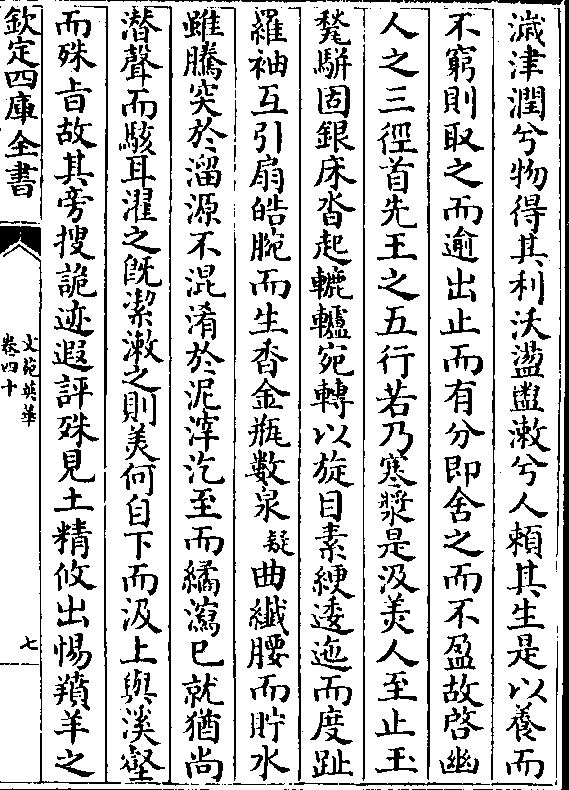 濊津潤兮物得其利沃盪盥漱兮人賴其生是以養而
不窮則取之而逾出止而有分即舍之而不盈故啓幽
人之三徑首先王之五行若乃寒漿是汲美人至止玉
甃駢固銀床沓起轆轤宛轉以旋目素綆逶迤而度趾
羅袖互引扇皓腕而生香金瓶數泉疑曲纖腰而貯水
雖騰突於溜源不混淆於泥滓汔至而繘瀉已就猶尚
潜聲而駭耳濯之既潔漱之則美何自下而汲上與溪壑
而殊旨故其旁搜詭迹遐評殊見土精攸出惕羵羊之
欽定四庫全書
文苑英華
卷四十
七